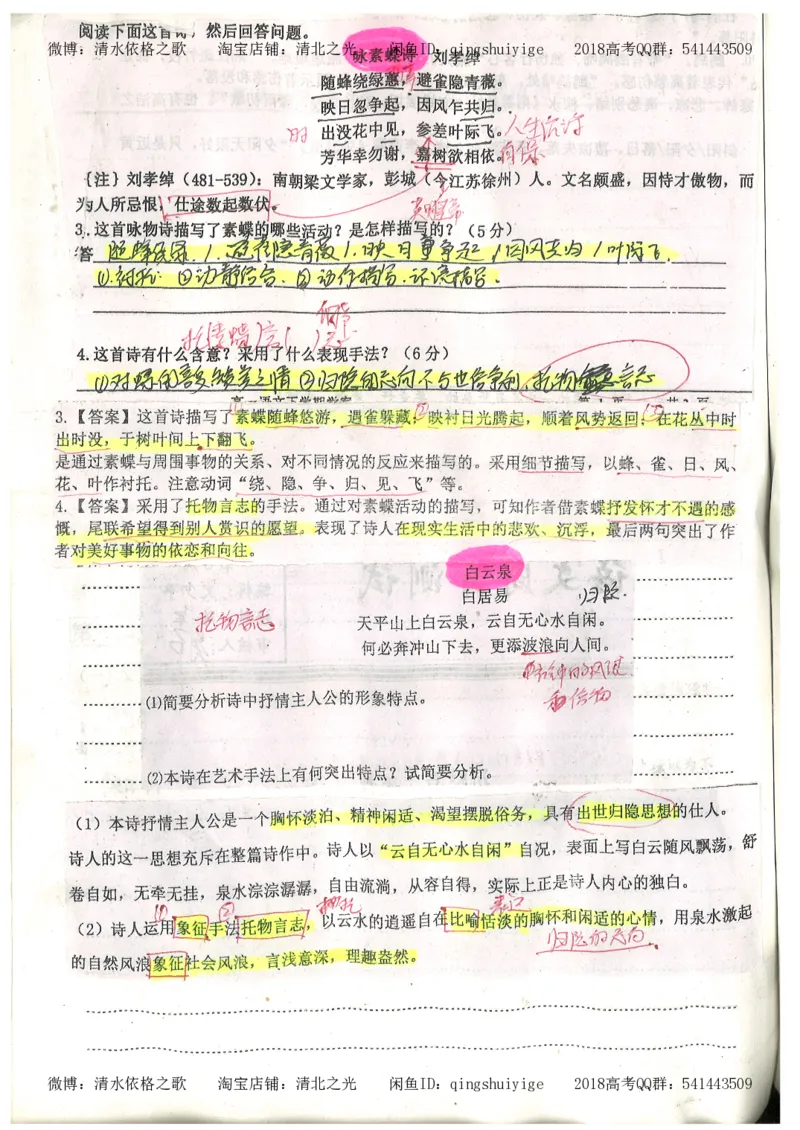 阅读下面这首诗，然后回答问题。
微博：清水依格之歌 淘宝店铺：清北之光 闲鱼ID：qingshuiyige 2018高考QQ群：541443509
咏素蝶诗 刘孝绰
随蜂绕绿蕙，避雀隐青薇。
映日忽争起，因风乍共归。
时 出没花中见，参差叶际飞。 人生沉浮
芳华幸勿谢，嘉树欲相依。
{注}刘孝绰（481-539）：南朝梁文学家，彭城（今江苏徐州）人。文名颇盛，因恃才傲物，而
为人所忌恨，仕途数起数伏。
3.这首咏物诗描写了素蝶的哪些活动？是怎样描写的？（5分）
答 随蜂绕绿蕙/避雀隐青薇/映日争起/因风共归/叶际飞.
①衬托 ②动静结合 ③动作描写.环境描写.
4.这首诗有什么含意？采用了什么表现手法？（6分）
托物言志
3.【答案】这首诗描写了素蝶随蜂悠游，遇雀躲藏；映衬日光腾起，顺着风势返回；在花丛中时
出时没，于树叶间上下翻飞。
是通过素蝶与周围事物的关系、对不同情况的反应来描写的。采用细节描写，以蜂、雀、日、风、
花、叶作衬托。注意动词“绕、隐、争、归、见、飞”等。
4.【答案】采用了托物言志的手法。通过对素蝶活动的描写，可知作者借素蝶抒发怀才不遇的感
慨，尾联希望得到别人赏识的愿望。表现了诗人在现实生活中的悲欢、沉浮，最后两句突出了作
者对美好事物的依恋和向往。
白云泉
白居易 归隐.
托物言志 天平山上白云泉，云自无心水自闲。
何必奔冲山下去，更添波浪向人间。
⑴简要分析诗中抒情主人公的形象特点。
⑵本诗在艺术手法上有何突出特点？试简要分析。
（1）本诗抒情主人公是一个胸怀淡泊、精神闲适、渴望摆脱俗务，具有出世归隐思想的仕人。
诗人的这一思想充斥在整篇诗作中。诗人以“云自无心水自闲”自况，表面上写白云随风飘荡，舒
卷自如，无牵无挂，泉水淙淙潺潺，自由流淌，从容自得，实际上正是诗人内心的独白。
① ②
（2）诗人运用象征手法托物言志，以云水的逍遥自在比喻恬淡的胸怀和闲适的心情，用泉水激起
归隐的志向.
的自然风浪象征社会风浪，言浅意深，理趣盎然。
微博：清水依格之歌 淘宝店铺：清北之光 闲鱼ID：qingshuiyige 2018高考QQ群：541443509